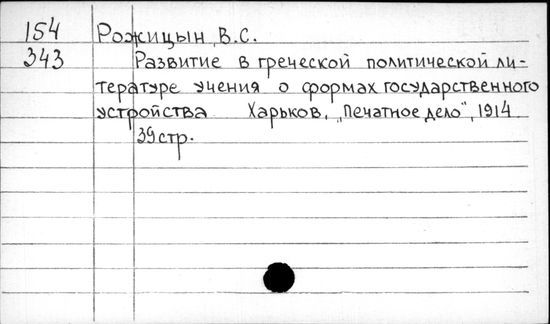 154 Рожицын, В.С.
343 Развитие в греческой политической ли-
тературе учения о формах государственного
устройства Харьков, „Печатное дело", 1914
39 стр.